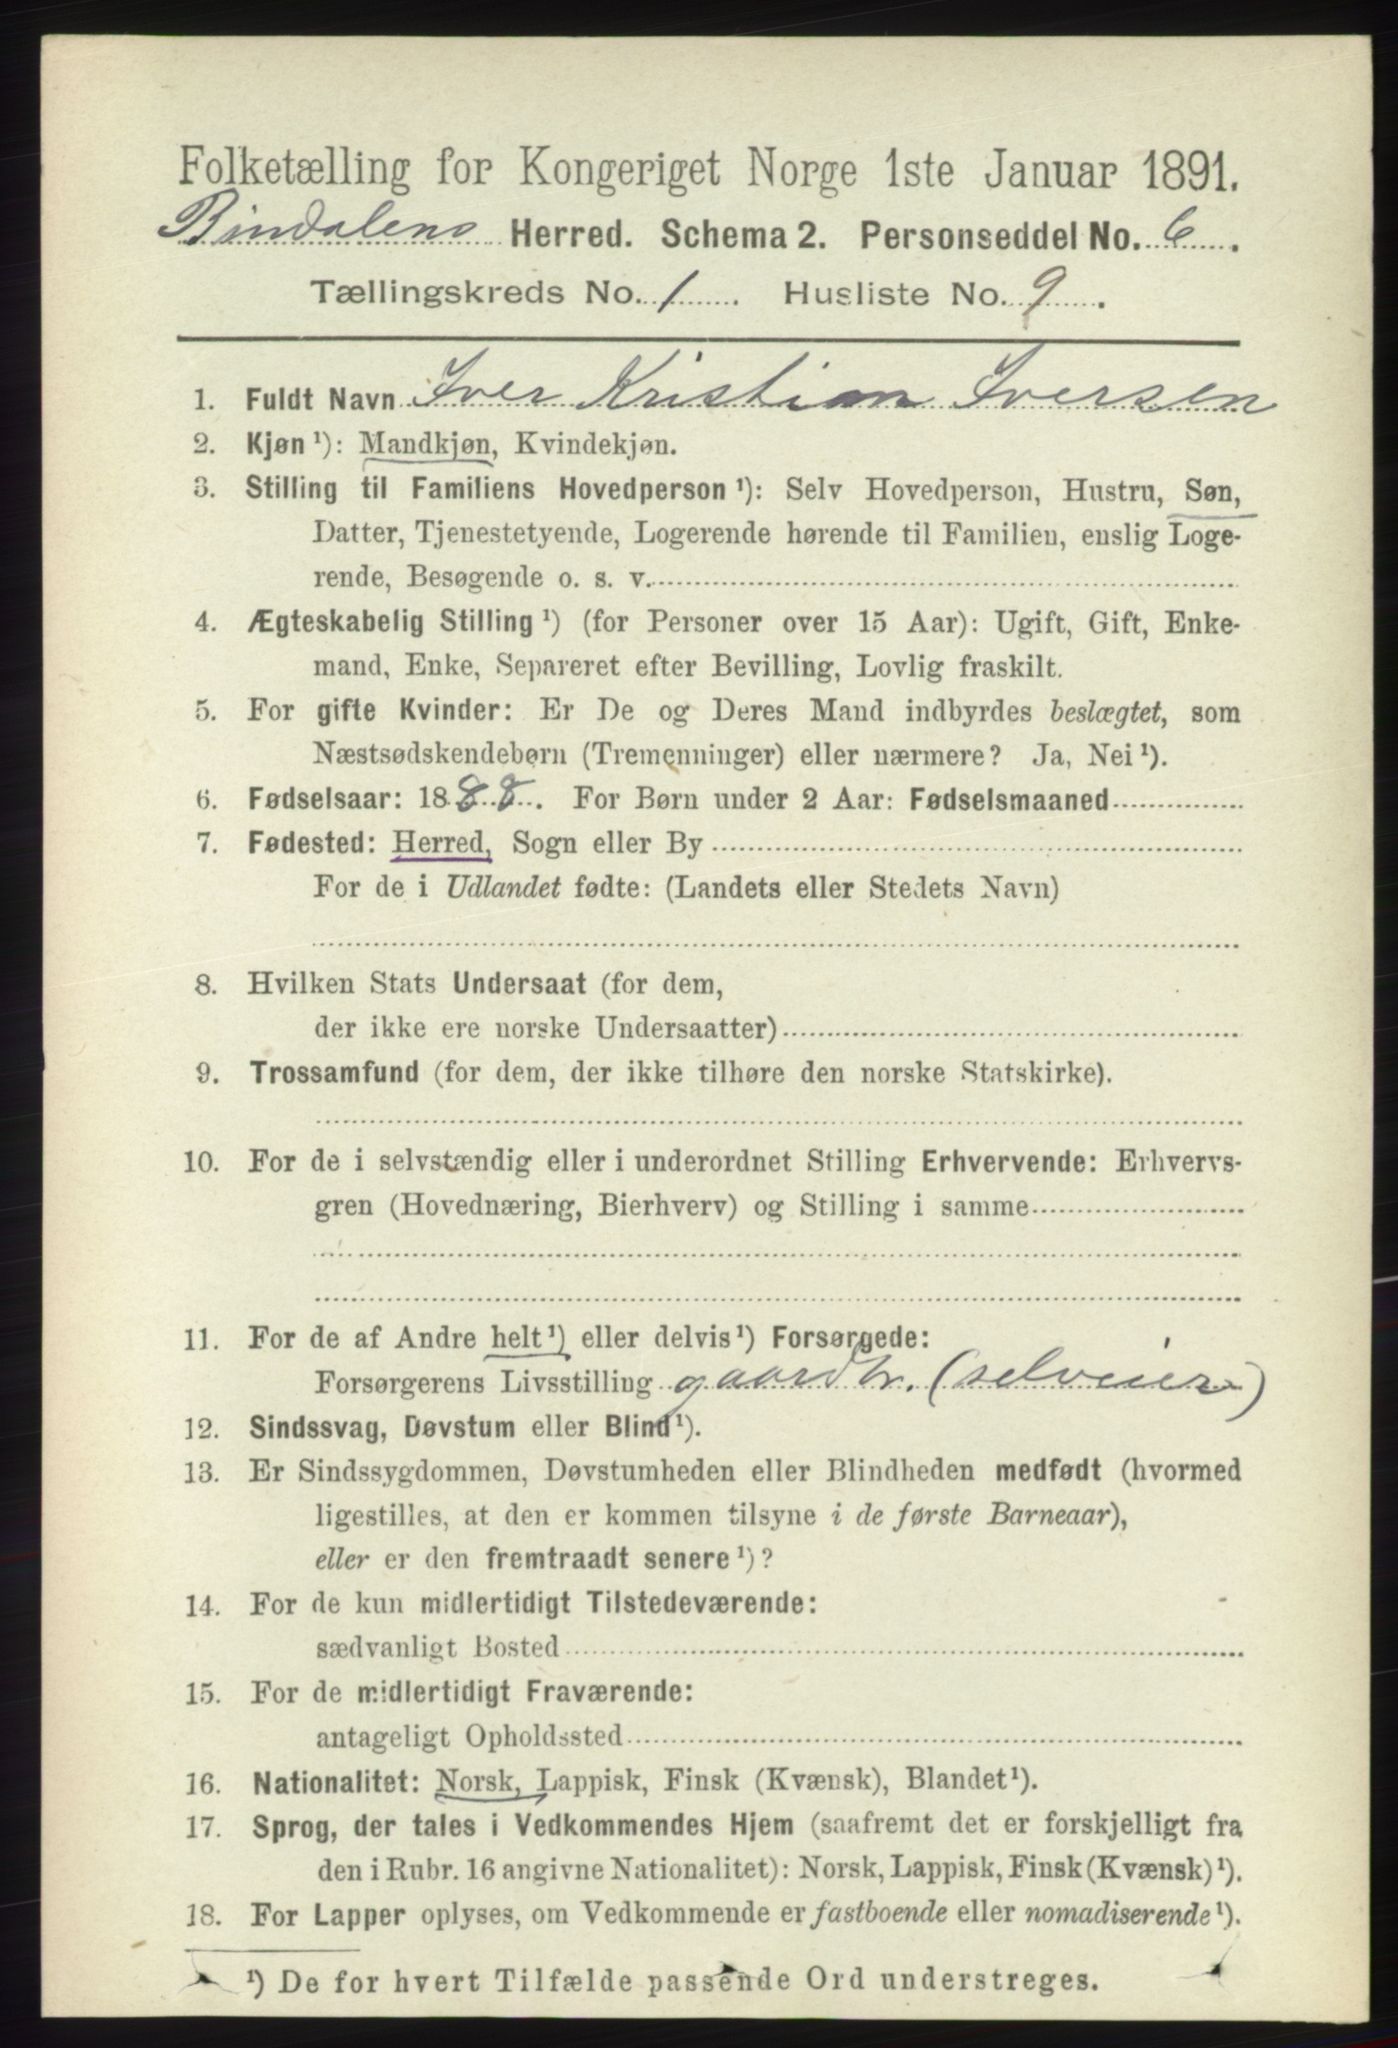 Folketælling for Kongeriget Norge 1ste Januar 1891.
Bindalens Herred. Schema 2. Personseddel No. 6.
Tællingskreds No. 1. Husliste No. 9.
1. Fuldt Navn Iver Kristian Iversen
2. Kjøn ¹): Mandkjøn, Kvindekjøn.
3. Stilling til Familiens Hovedperson ¹): Selv Hovedperson, Hustru, Søn,
Datter, Tjenestetyende, Logerende hørende til Familien, enslig Loge-
rende, Besøgende o. s. v.
4. Ægteskabelig Stilling ¹) (for Personer over 15 Aar): Ugift, Gift, Enke-
mand, Enke, Separeret efter Bevilling, Lovlig fraskilt.
5. For gifte Kvinder: Er De og Deres Mand indbyrdes beslægtet, som
Næstsødskendebørn (Tremenninger) eller nærmere? Ja, Nei ¹).
6. Fødselsaar: 1888. For Børn under 2 Aar: Fødselsmaaned
7. Fødested: Herred, Sogn eller By
For de i Udlandet fødte: (Landets eller Stedets Navn)
8. Hvilken Stats Undersaat (for dem,
der ikke ere norske Undersaatter)
9. Trossamfund (for dem, der ikke tilhøre den norske Statskirke).
10. For de i selvstændig eller i underordnet Stilling Erhvervende: Erhvervs-
gren (Hovednæring, Bierhverv) og Stilling i samme
11. For de af Andre helt ¹) eller delvis ¹) Forsørgede:
Forsørgerens Livsstilling gaardbr. (selveier)
12. Sindssvag, Døvstum eller Blind ¹).
13. Er Sindssygdommen, Døvstumheden eller Blindheden medfødt (hvormed
ligestilles, at den er kommen tilsyne i de første Barneaar),
eller er den fremtraadt senere ¹)?
14. For de kun midlertidigt Tilstedeværende:
sædvanligt Bosted
15. For de midlertidigt Fraværende:
antageligt Opholdssted
16. Nationalitet: Norsk, Lappisk, Finsk (Kvænsk), Blandet ¹).
17. Sprog, der tales i Vedkommendes Hjem (saafremt det er forskjelligt fra
den i Rubr. 16 angivne Nationalitet): Norsk, Lappisk, Finsk (Kvænsk) ¹).
18. For Lapper oplyses, om Vedkommende er fastboende eller nomadiserende ¹).
¹) De for hvert Tilfælde passende Ord understreges.